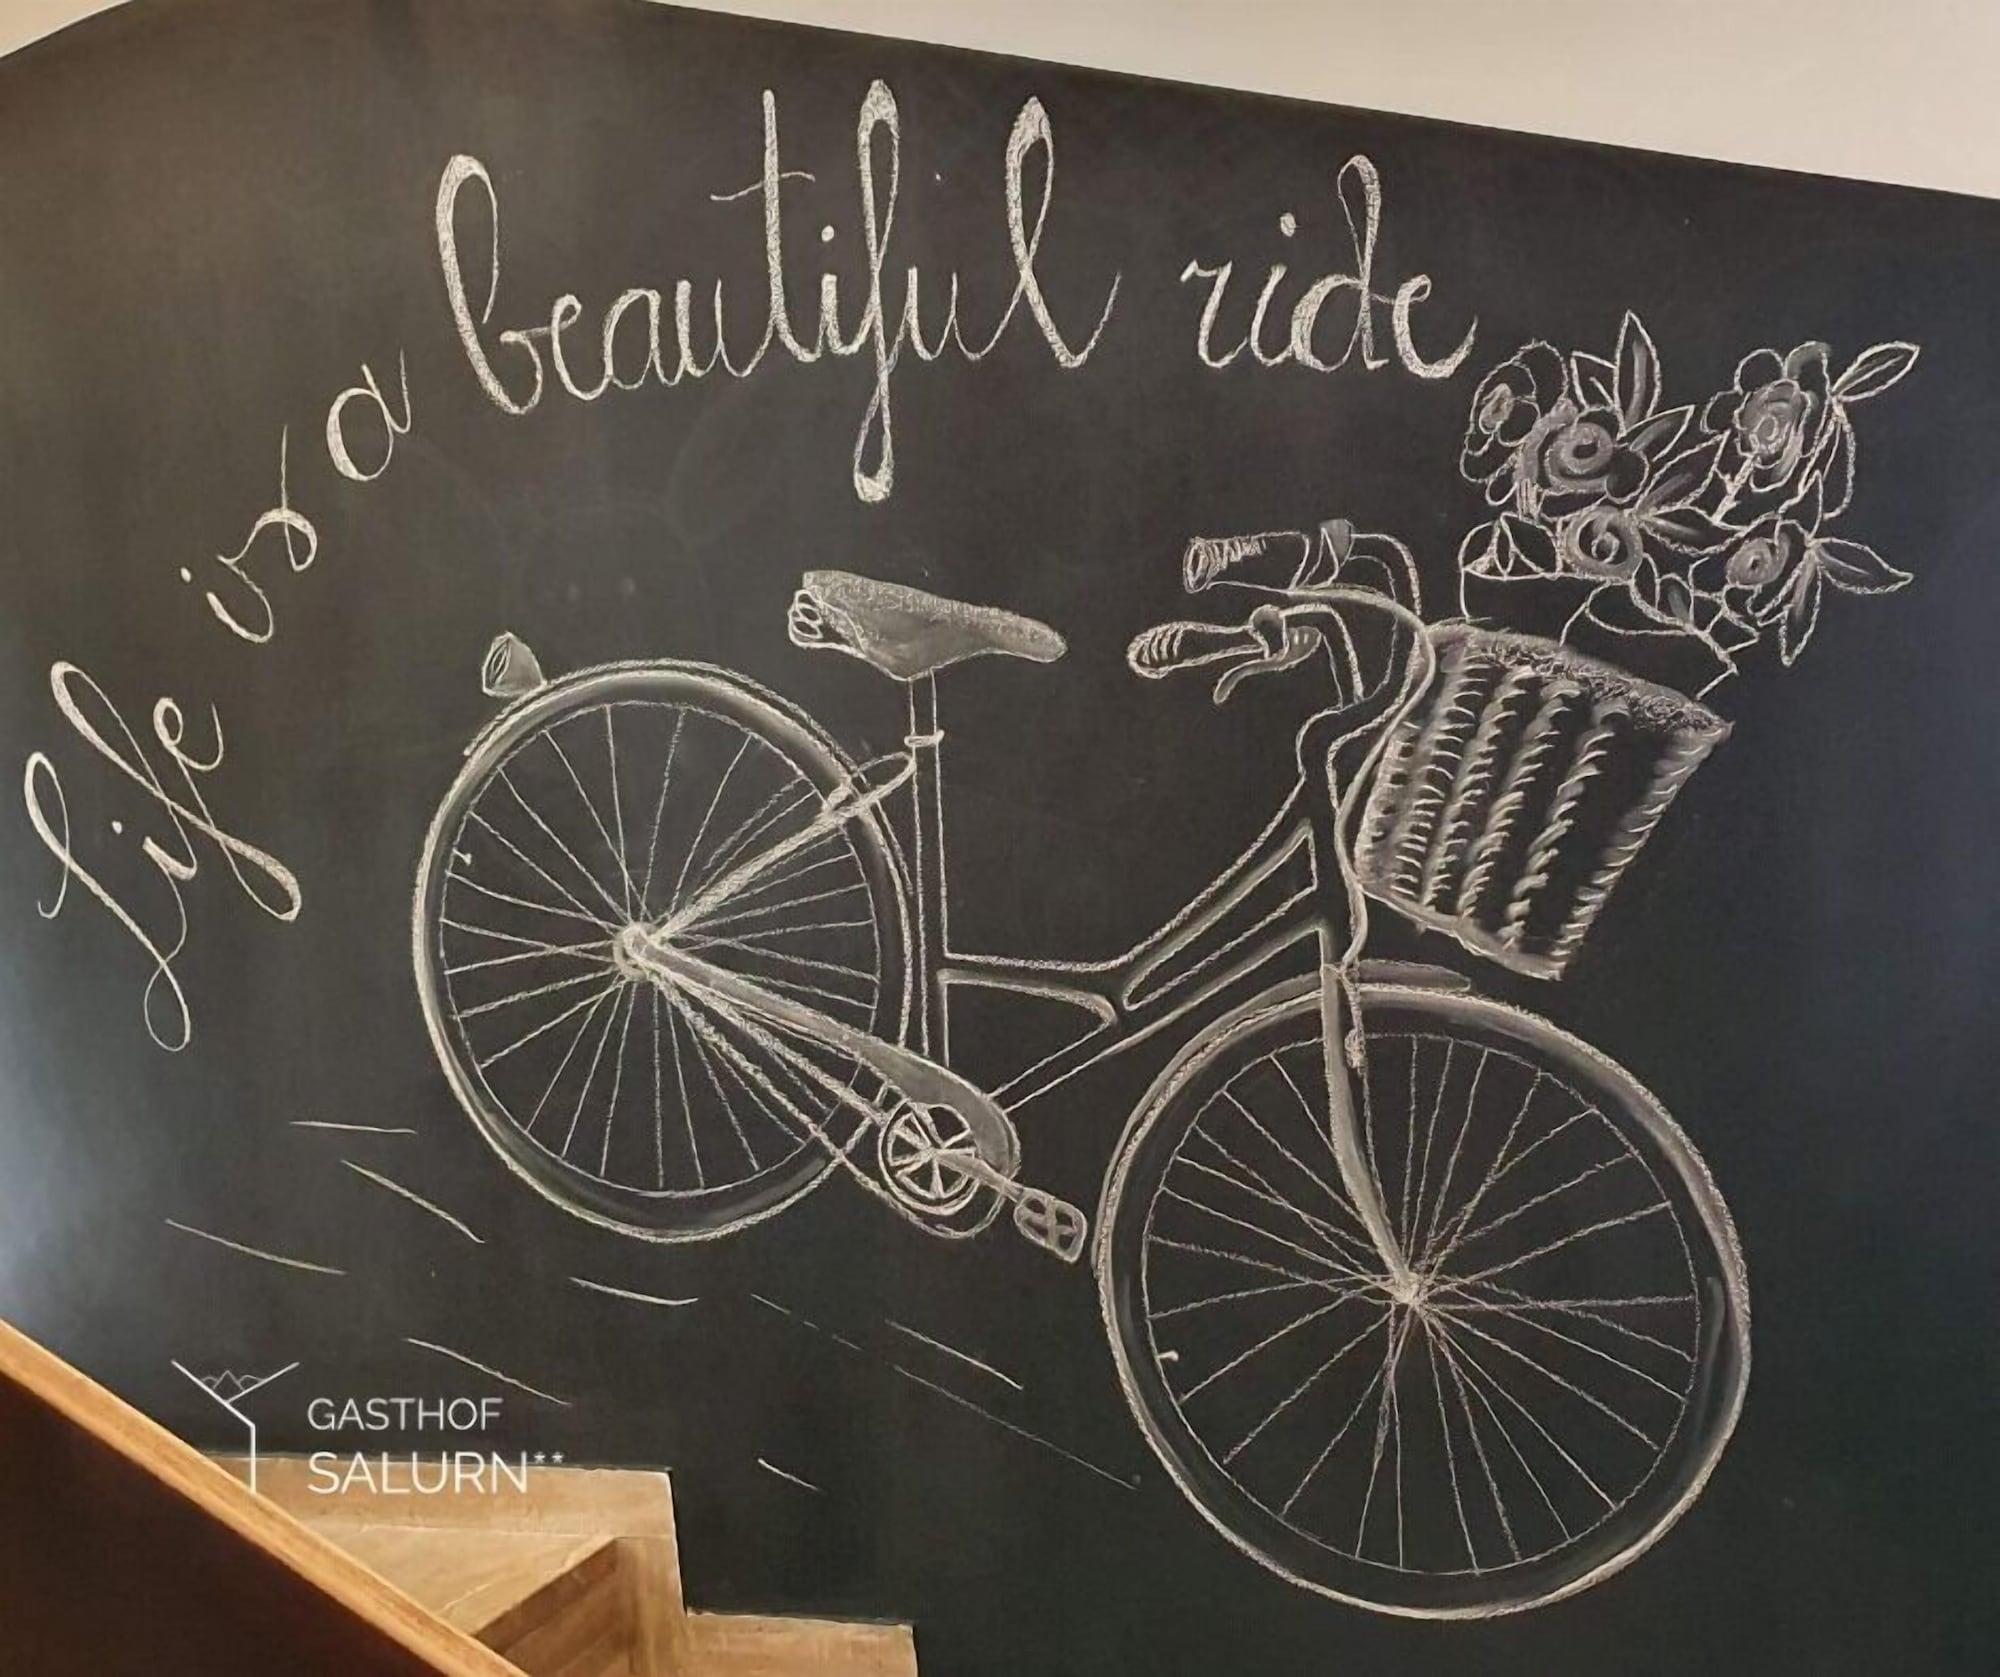 Life is a beautiful ride
GASTHOF
SALURN**